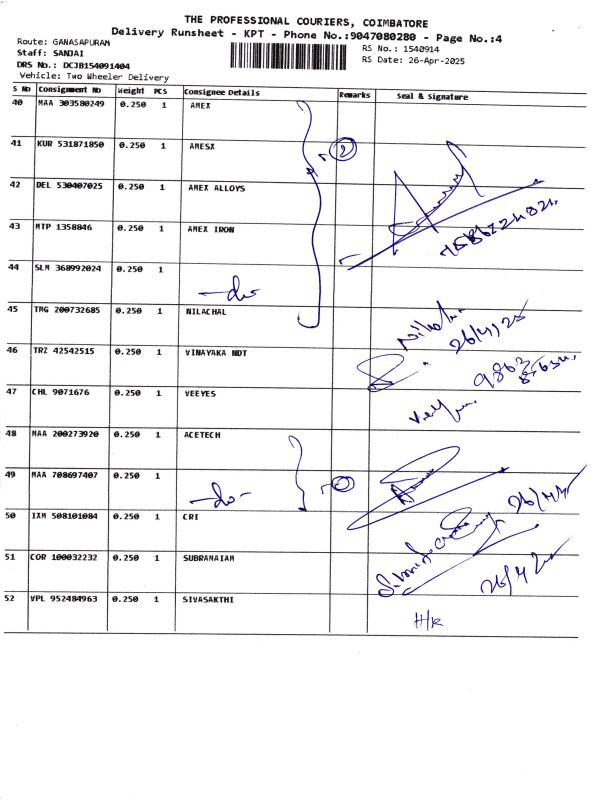 THE PROFESSIONAL COURIERS, COIMBATORE
Delivery Runsheet - KPT - Phone No.:9047080280 - Page No.:4
Route: GANASAPURAM
RS No.: 1540914
Staff: SANJAI
RS Date: 26-Apr-2025
DRS No.: DCJB154091404
Vehicle: Two Wheeler Delivery
S No Consignment No Weight PCS Consignee Details Remarks Seal & Signature
40 MAA 303580249 0.250 1 AMEX
41 KUR 531871850 0.250 1 AMESX
2
42 DEL 530407025 0.250 1 AMEX ALLOYS
43 MTP 1358846 0.250 1 AMEX IRON
44 SLM 368992024 0.250 1
-do-
45 TMG 200732685 0.250 1 NILACHAL
26/4/25
46 TRZ 42542515 0.250 1 VINAYAKA NDT
47 CHL 9071676 0.250 1 VEEYES
48 MAA 200273920 0.250 1 ACETECH
49 MAA 708697407 0.250 1
-do-
50 IXM 508101084 0.250 1 CRI
51 COR 100032232 0.250 1 SUBRAMAIAM
52 VPL 952484963 0.250 1 SIVASAKTHI
H/R